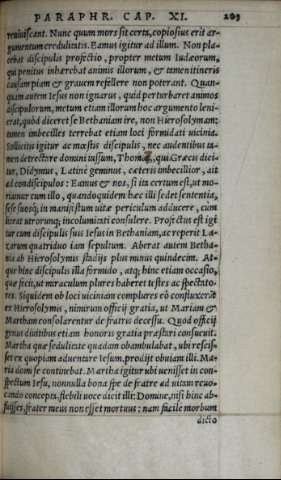 PARAPHR. CAP. XI. 203
reuiuiscant. Nunc quum mors sit certa, copiosius erit ar-
gumentum credulitatis. Eamus igitur ad illum. Non pla-
cebat discipulis profectio, propter metum Iudæorum,
qui penitus inhærebat animis illorum, & tamen itineris
causam piam & grauem refellere non poterant. Quan-
quam autem Iesus non ignarus, quid perturbaret animos
discipulorum, metum etiam illorum hoc argumento leni-
erat, quòd diceret se Bethaniam ire, non Hierosolymam:
tamen imbecilles terrebat etiam loci formidati uicinia.
Sollicitis igitur ac mœstis discipulis, nec audentibus ta-
men detrectare domini iussum, Thomas, qui Græcis dici-
tur, Didymus, Latinè geminus, cæteris imbecillior, ait
ad condiscipulos: Eamus & nos, si ita certum est, ut mo-
riamur cum illo, quandoquidem hæc illi sedet sententia,
sese suosq́; in manifestum uitæ periculum adducere, cum
liceat utrorunq; incolumitati consulere. Profectus est igi
tur cum discipulis suis Iesus in Bethaniam, ac reperit La-
zarum quatriduo iam sepultum. Aberat autem Betha-
nia ab Hierosolymis stadijs plus minus quindecim. At-
que hinc discipulis illa formido, atq; hinc etiam occasio,
quæ fecit, ut miraculum plures haberet testes ac spectato-
res. Siquidem ob loci uiciniam complures eò confluxerāt
ex Hierosolymis, nimirum officij gratia, ut Mariam &
Martham consolarentur de fratris decessu. Quod officij
genus diuitibus etiam honoris gratia præstari consueuit.
Martha quæ sedulitate quadam obambulabat, ubi rescis-
set ex quopiam aduentare Iesum, prodijt obuiam illi. Ma-
ria domi se continebat. Martha igitur ubi uenisset in con-
spectum Iesu, nonnulla bona spe de fratre ad uitam reuo-
cando concepta, flebili uoce dicit illi: Domine, nisi hinc ab-
fuisses, frater meus non esset mortuus: nam facile morbum
dicto